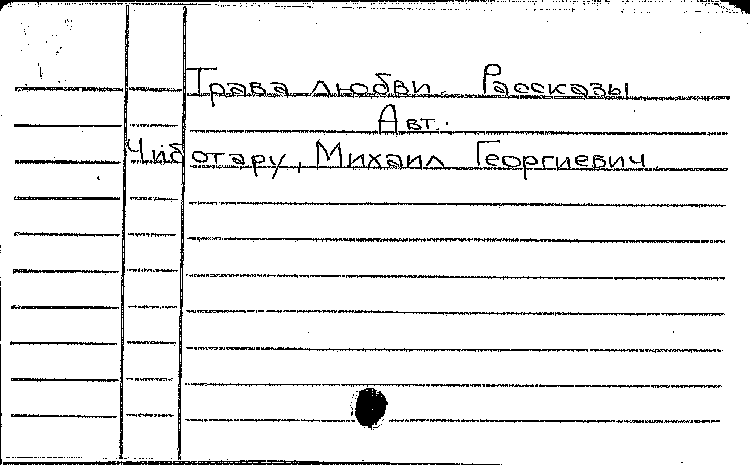 Трава любви. Рассказы
Авт.:
Чиботару, Михаил Георгиевич.